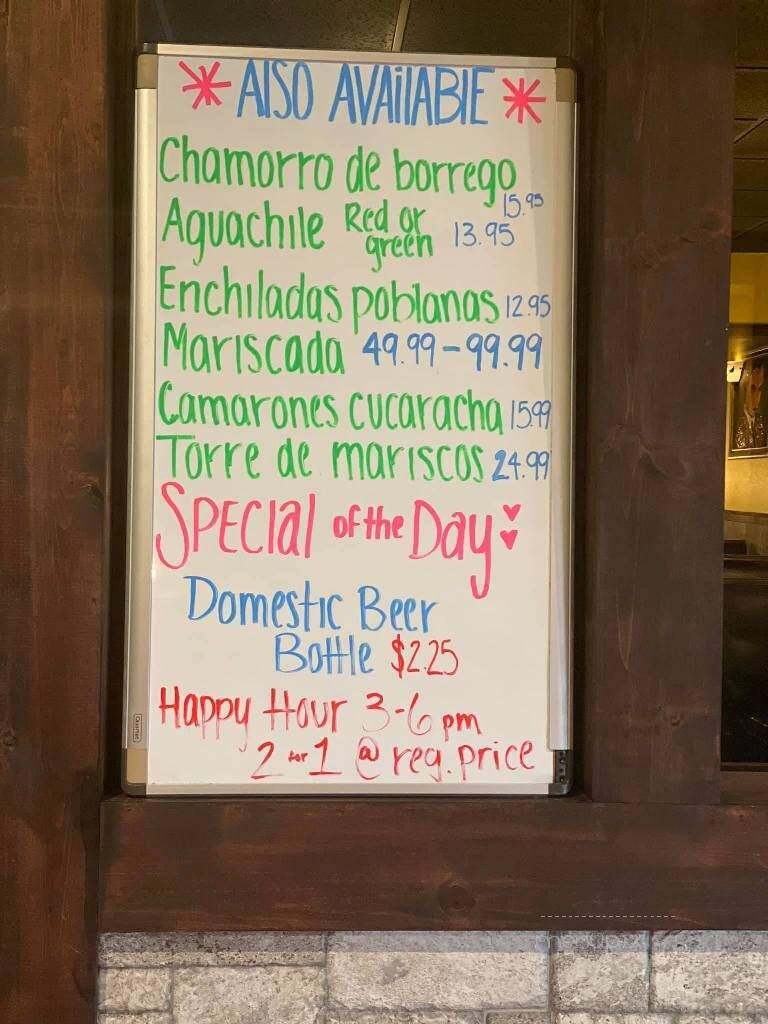 * AlSO AVAilABlE *
Chamorro de borrego
15.95
Aguachile Red or green 13.95
Enchiladas poblanas 12.95
Mariscada 49.99-99.99
Camarones cucaracha 15.99
Torre de mariscos 24.99
SPECIal of the Day
Domestic Beer
Bottle $2.25
Happy Hour 3-6 pm
2 for 1 @ reg. price